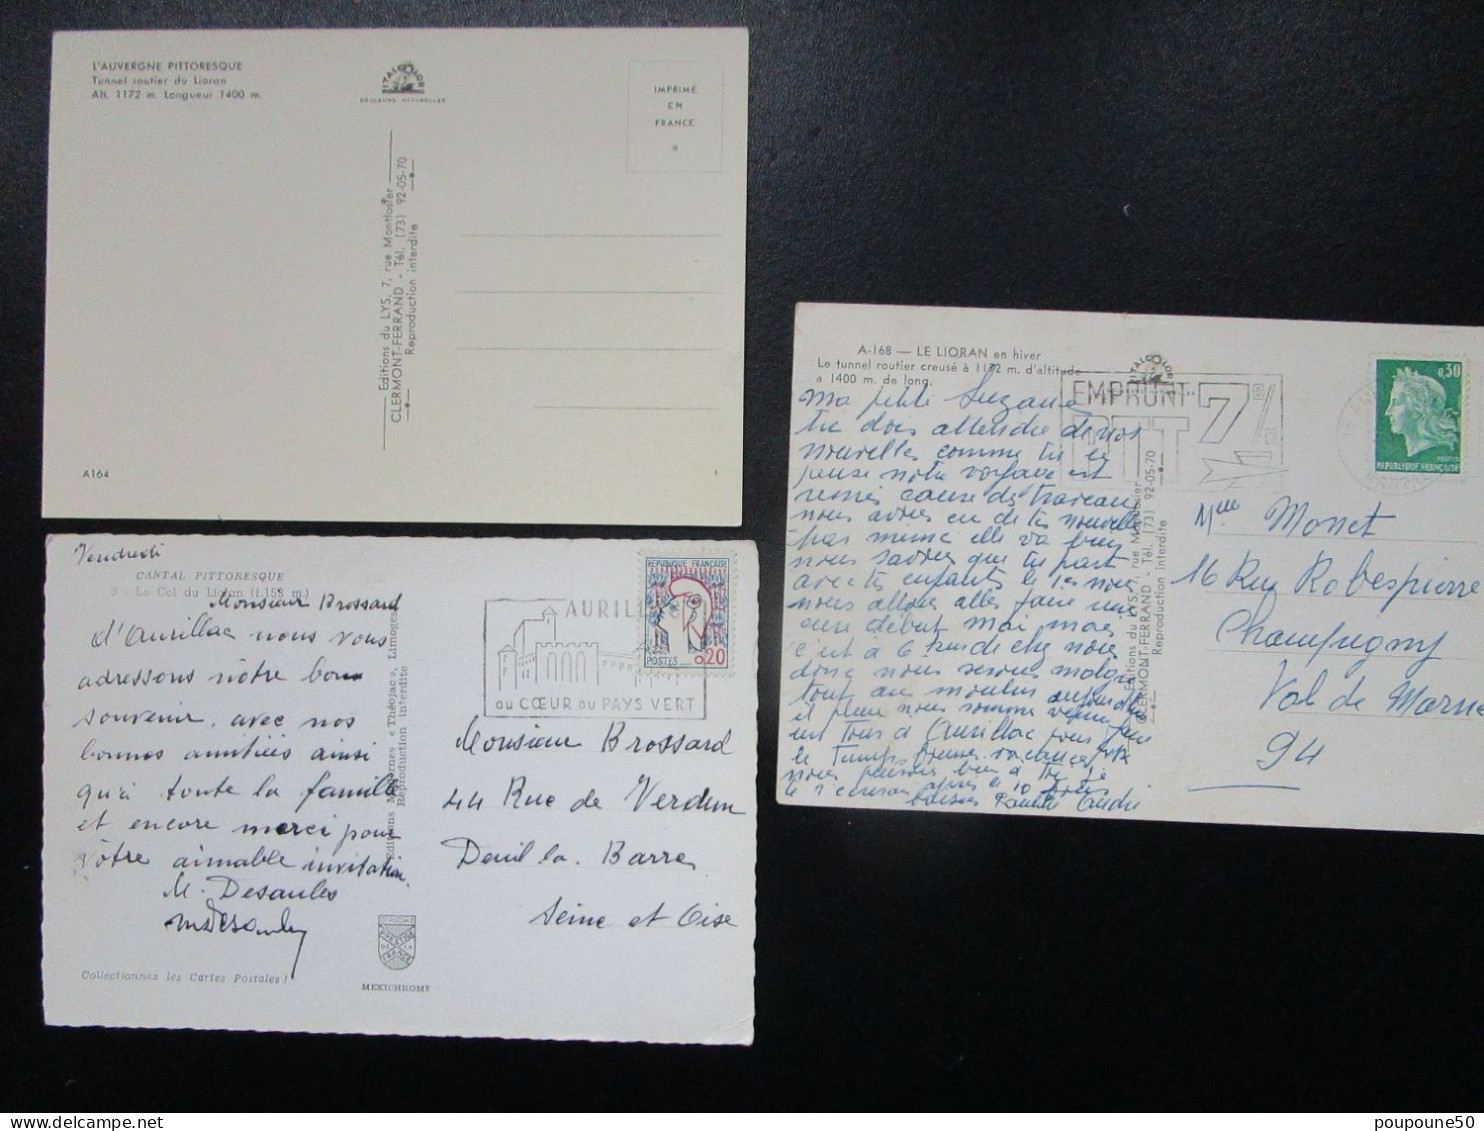 L'AUVERGNE PITTORESQUE
Tunnel routier du Lioran
Alt. 1172 m. Longueur 1400 m.
ITALCOLOR
COULEURS NATURELLES
IMPRIMÉ
EN
FRANCE
Editions du LYS, 7, rue Montlosier
CLERMONT-FERRAND - Tél. (73) 92-05-70
Reproduction interdite
A164
Vendredi
CANTAL PITTORESQUE
3 - Le Col du Lioran (1.153 m.)
Monsieur Brossard
d'Aurillac nous vous
adressons nôtre bon
souvenir, avec nos
bonnes amitiés ainsi
qu'à toute la famille
et encore merci pour
vôtre aimable invitation
M. Desaules
Collectionnez les Cartes Postales !
Editions Modernes « Théojac », Limoges
Reproduction interdite
DIPLOME
PRESTIGE
DE LA
FRANCE
MEXICHROME
AURILLAC
au CŒUR du PAYS VERT
REPUBLIQUE FRANÇAISE
POSTES
0,20
Monsieur Brossard
44 Rue de Verdun
Deuil la. Barre
Seine et Oise
A-168 — LE LIORAN en hiver
Le tunnel routier creusé à 1172 m. d'altitude
a 1400 m. de long.
ITALCOLOR
EMPRUNT
PTT 7
0,30
REPUBLIQUE FRANÇAISE
Ma petite Suzanne
tu dois attendre de nos
nouvelles comme tu
pense notre voyage est
remis cause des travaux
nous avons eu de tes nouvelles
par meme elle va bien
nous savons que tu part
avec tes enfants le 1er nous
nous allons aller faire une
cure début mai mais
c'est à 6
donc nous serons
tout au moulin aujourd'hui
il pleut nous sommes venus faire
un tour à Aurillac
le Temps bonnes vacances
nous
le 10
baisers
Editions du LYS, 7, rue Montlosier
CLERMONT-FERRAND - Tél. (73) 92-05-70
Reproduction interdite
Mlle Monnet
16 Rue Robespierre
Champigny
Val de Marne
94
poupoune50